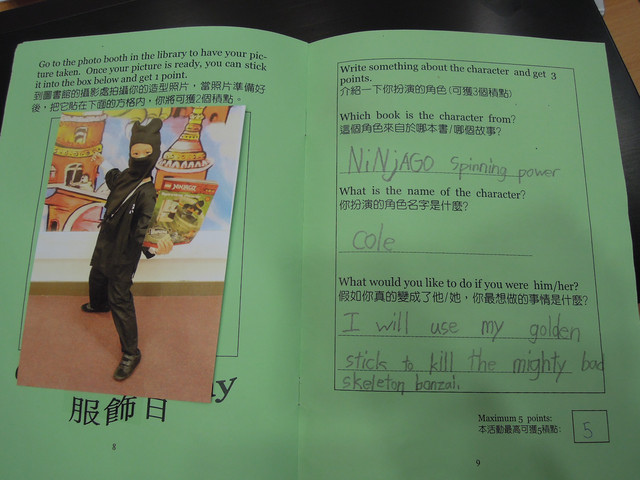 Go to the photo booth in the library to have your pic-
ture taken. Once your picture is ready, you can stick
it into the box below and get 1 point.
到圖書館的攝影處拍攝你的造型照片，當照片準備好
後，把它貼在下面的方格內，你將可獲2個積點。
NINJAGO
服飾日
8
Write something about the character and get 3
points.
介紹一下你扮演的角色 (可獲3個積點)
Which book is the character from?
這個角色來自於哪本書/哪個故事?
NiNjAGO spinning power
What is the name of the character?
你扮演的角色名字是什麼?
Cole
What would you like to do if you were him/her?
假如你真的變成了他/她，你最想做的事情是什麼?
I will use my golden
stick to kill the mighty bad
skeleton bonzai.
Maximum 5 points:
本活動最高可獲5積點:
5
9